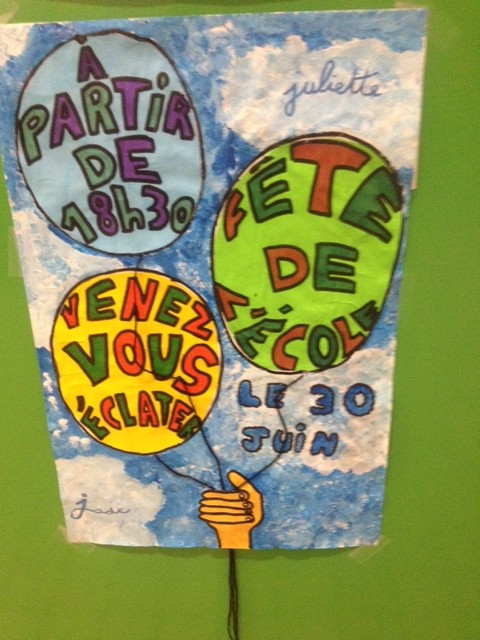 À
PARTiR
DE
18h30
juliette
FÊTE
DE
L'ÉCOLE
VENEZ
VOUS
ÉCLATER
LE 30
JUiN
jade